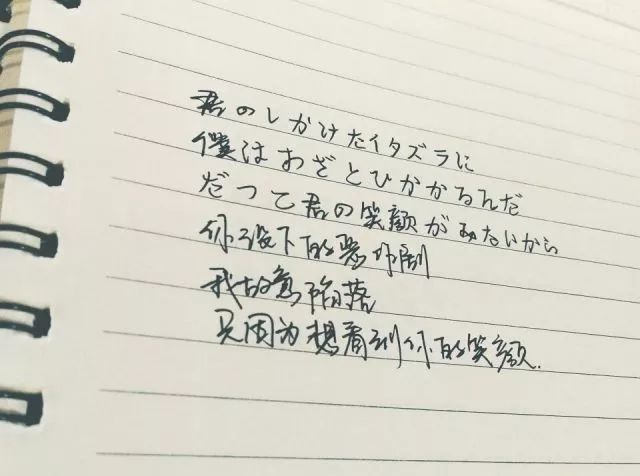 君のしかけたイタズラに
僕はわざとひかかるんだ
だって君の笑顔がみないから
你设下的恶作剧
我故意陷落
只因为想看到你的笑颜.